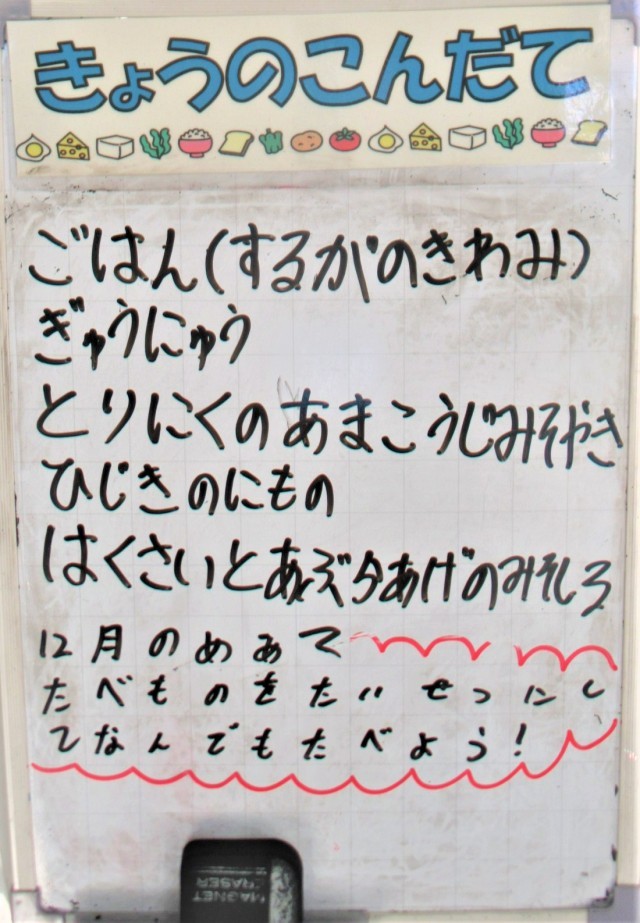 きょうのこんだて
ごはん(するがのきわみ)
ぎゅうにゅう
とりにくのあまこうじみそやき
ひじきのにもの
はくさいとあぶらあげのみそしる
12月のめあて
たべものをたいせつにし
てなんでもたべよう!
MAGNET
ERASER